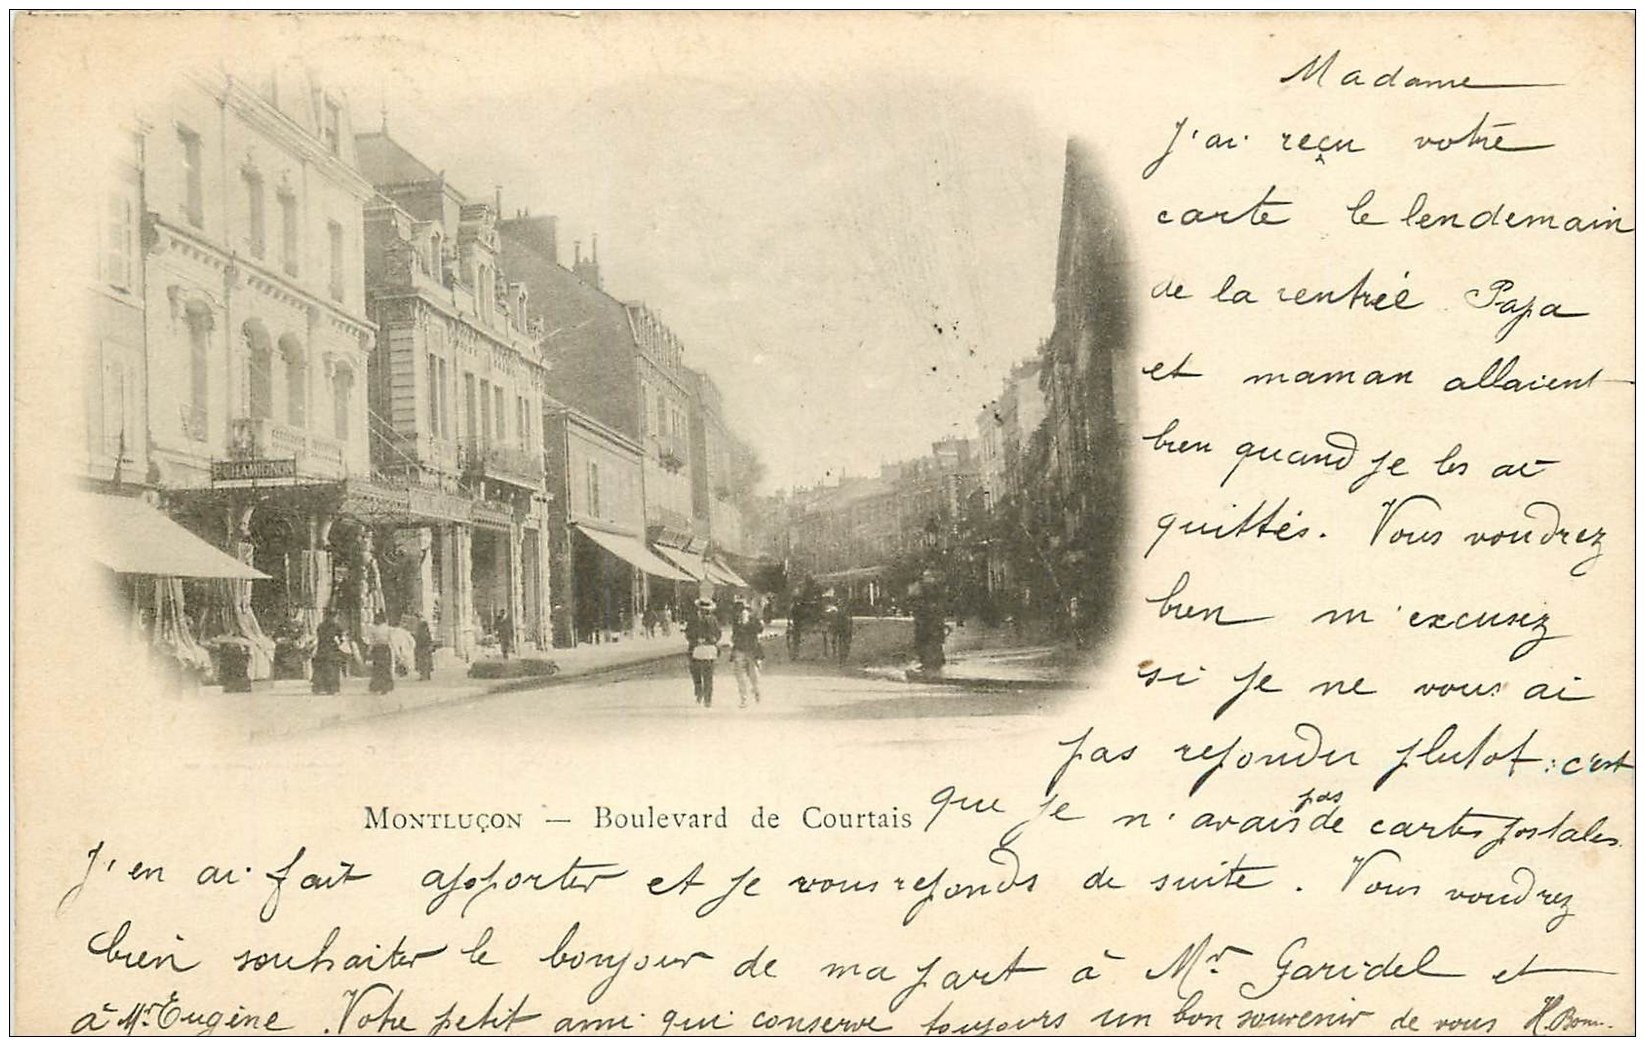 Madame
J'ai reçu votre
carte le lendemain
de la rentrée. Papa
et maman allaient
bien quand je les ai
quittés. Vous voudrez
bien m'excusez
si je ne vous ai
pas repondu plutot : c'est
que je n'avais pas de cartes postales.
CHAMIGNON
MONTLUÇON — Boulevard de Courtais
J'en ai fait apporter et je vous reponds de suite. Vous voudrez
bien souhaiter le bonjour de ma part à Mr Garidel et
à Mr Eugène. Votre petit ami qui conserve toujours un bon souvenir de vous H.